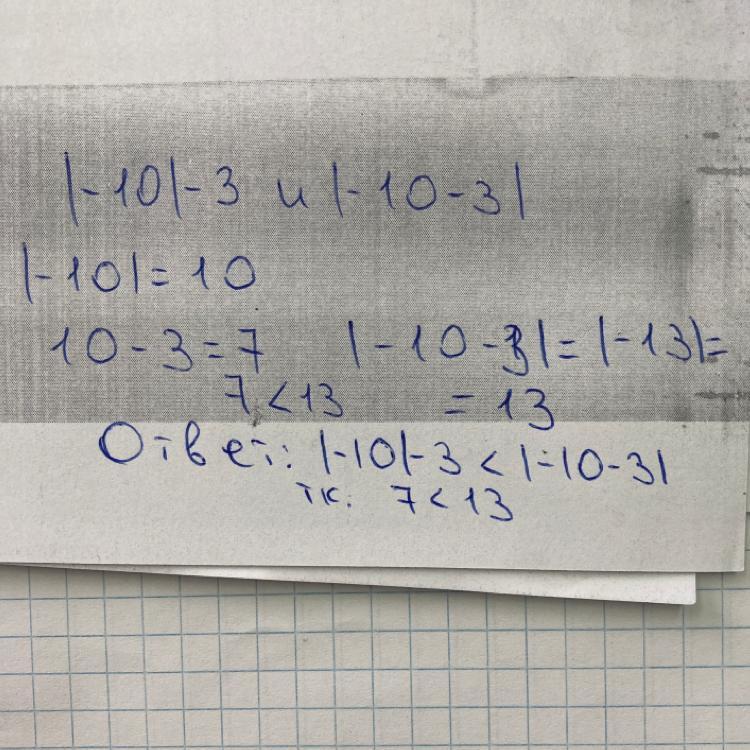 |-10|-3 и |-10-3|
|-10|=10
10-3=7 |-10-3|=|-13|=
7<13 =13
Ответ: |-10|-3<|-10-3|
тк: 7<13